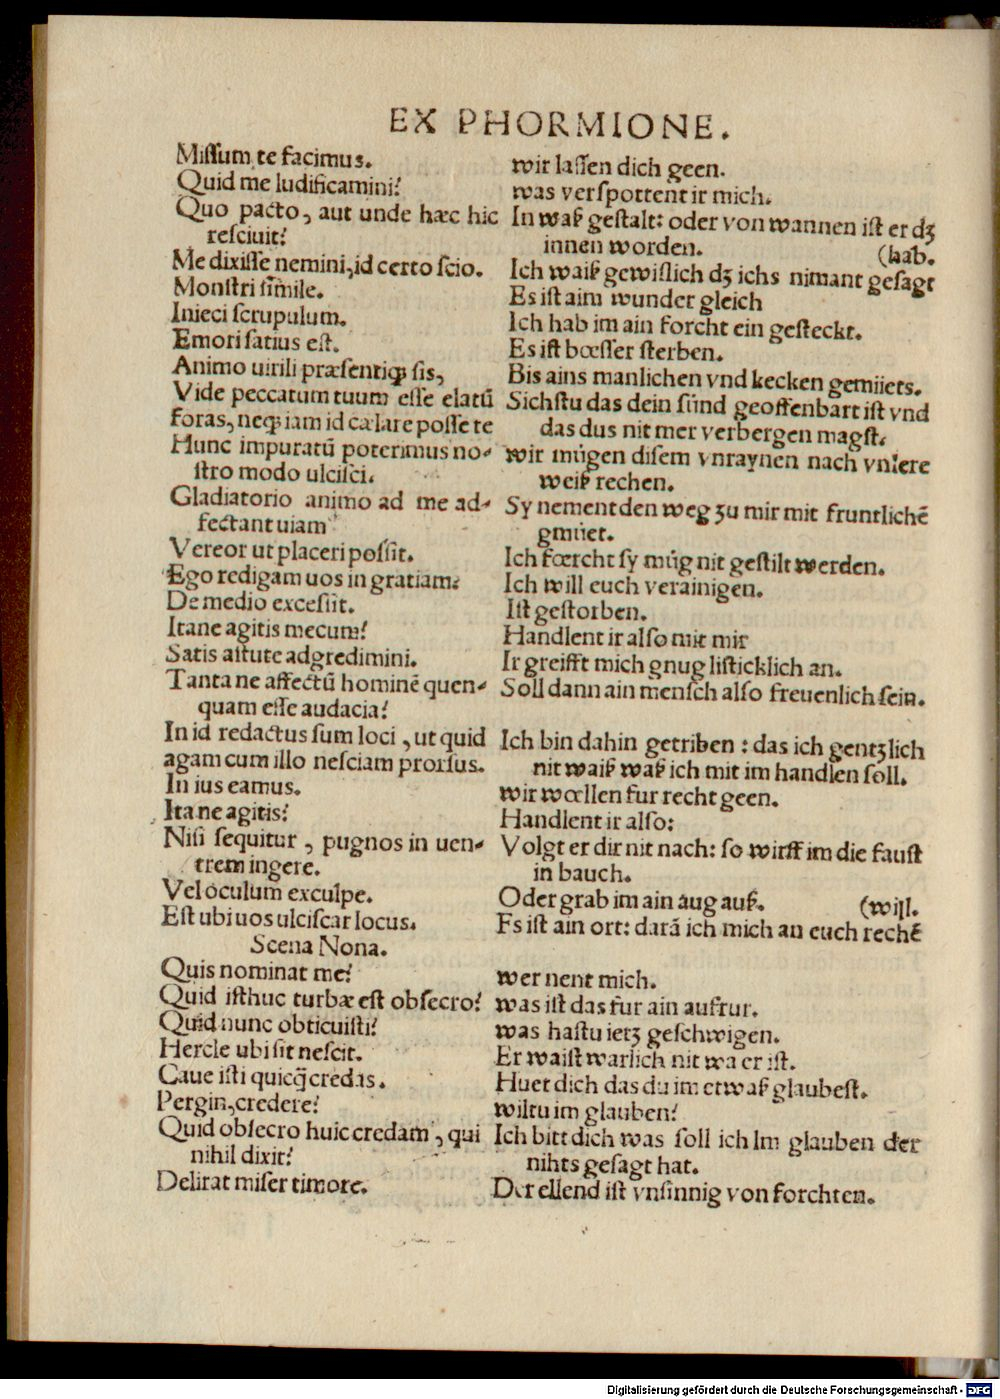 EX PHORMIONE.
Missum te facimus.
Quid me ludificamini?
Quo pacto, aut unde hæc hic
resciuit?
Me dixisse nemini, id certo scio.
Monstri simile.
Inieci scrupulum.
Emori satius est.
Animo uirili præsentiq; sis,
Vide peccatum tuum esse elatū
foras, neq; iam id cælare posse te
Hunc impuratū poterimus no-
stro modo ulcisci.
Gladiatorio animo ad me ad-
fectant uiam
Vereor ut placeri possit.
Ego redigam uos in gratiam.
De medio excessit.
Itane agitis mecum?
Satis astute adgredimini.
Tantane affectū hominē quen-
quam esse audacia?
In id redactus sum loci, ut quid
agam cum illo nesciam prorsus.
In ius eamus.
Itane agitis?
Nisi sequitur, pugnos in uen-
trem ingere.
Vel oculum exculpe.
Est ubi uos ulciscar locus.
Scena Nona.
Quis nominat me?
Quid isthuc turbæ est obsecro?
Quid nunc obticuisti?
Hercle ubi sit nescit.
Caue isti quicq̄ credas.
Pergin, credere?
Quid obsecro huic credam, qui
nihil dixit?
Delirat miser timore.
wir lassen dich geen.
was verspottent ir mich.
In waß gestalt: oder von wannen ist er dʒ
innen worden. (hab.
Ich waiß gewislich dʒ ichs nimant gesagt
Es ist aim wunder gleich
Ich hab im ain forcht ein gesteckt.
Es ist bœsser sterben.
Bis ains manlichen vnd kecken gemüets.
Sichstu das dein sünd geoffenbart ist vnd
das dus nit mer verbergen magst.
wir mügen disem vnraynen nach vnsere
weiß rechen.
Sy nement den weg zu mir mit fruntlichē
gmüet.
Ich fœrcht sy müg nit gestilt werden.
Ich will euch verainigen.
Ist gestorben.
Handlent ir also mit mir
Ir greifft mich gnug listicklich an.
Soll dann ain mensch also freuenlich sein.
Ich bin dahin getriben: das ich gentzlich
nit waiß waß ich mit im handlen soll.
wir wœllen fur recht geen.
Handlent ir also:
Volgt er dir nit nach: so wirff im die faust
in bauch.
Oder grab im ain aug auß. (will.
Es ist ain ort: darā ich mich an euch rechē
wer nent mich.
was ist das fur ain aufrur.
was hastu ietz geschwigen.
Er waist warlich nit wa er ist.
Huet dich das du im etwaß glaubest.
wiltu im glauben?
Ich bitt dich was soll ich Im glauben der
nihts gesagt hat.
Der ellend ist vnsinnig von forchten.
Digitalisierung gefördert durch die Deutsche Forschungsgemeinschaft - DFG